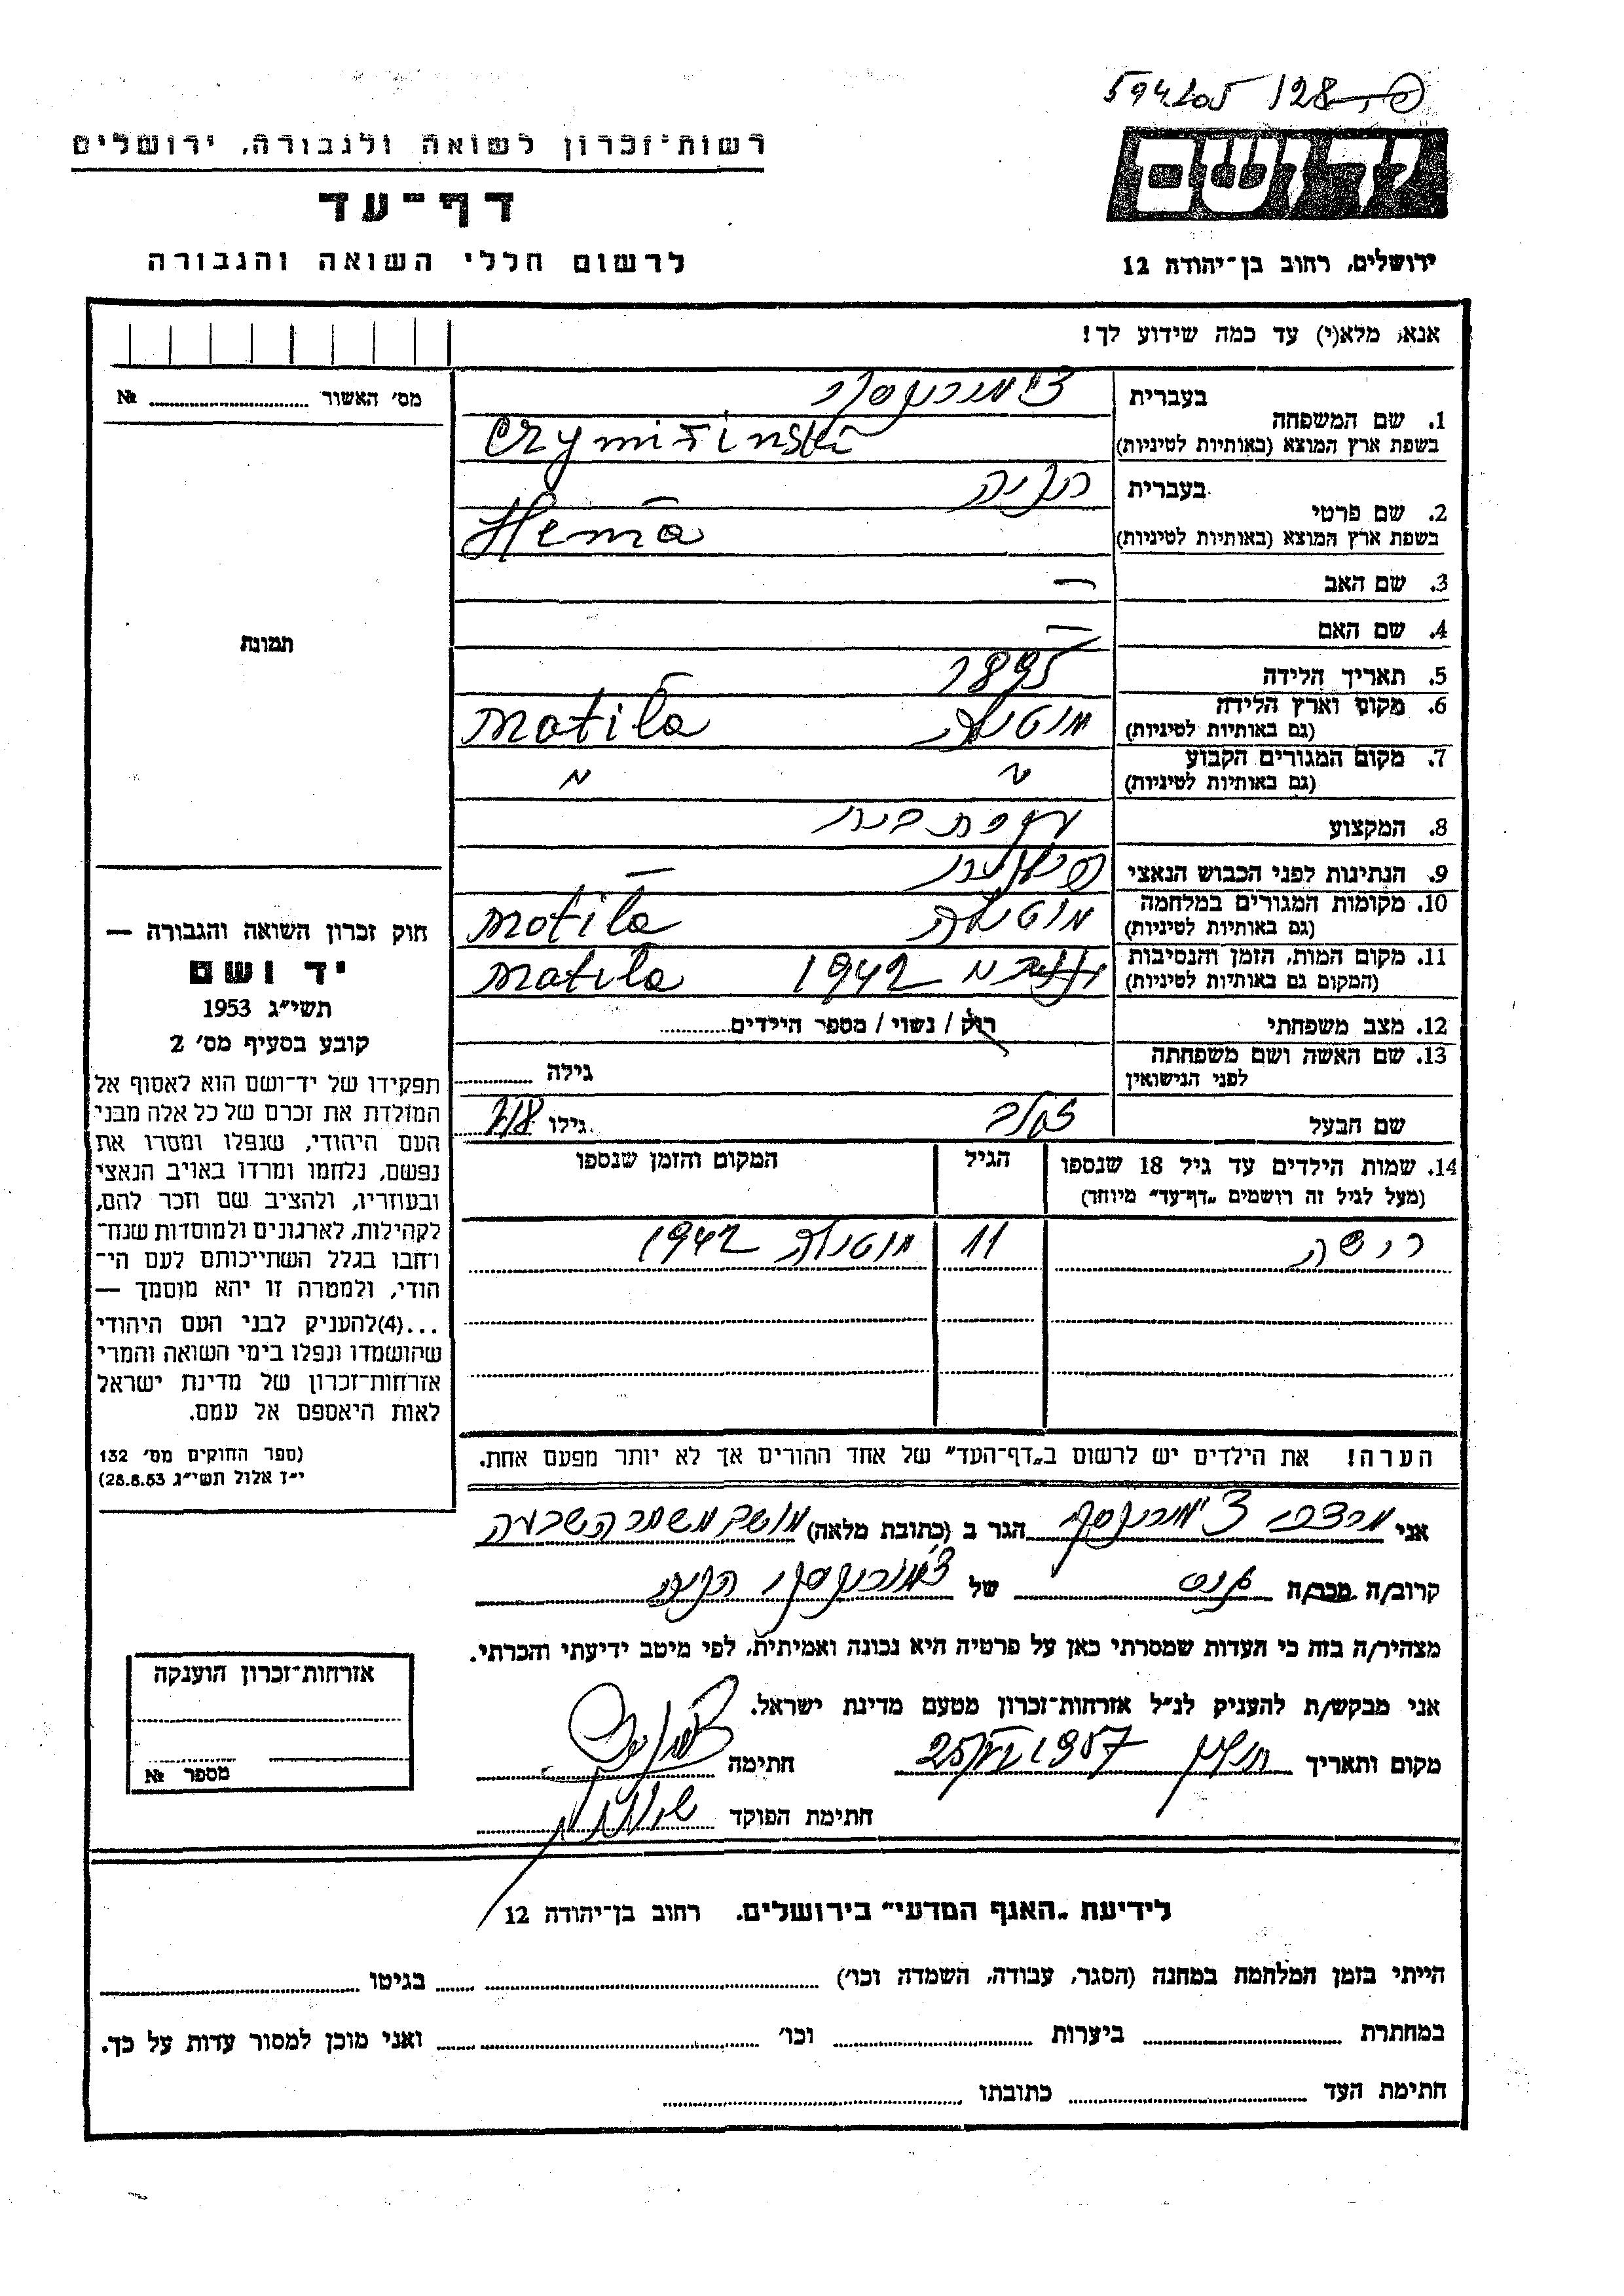 594205 128
רשות־זכרון לשואה ולגבורה, ירושלים
יד ושם
דף־עד
לרשום חללי השואה והגבורה
ירושלים, רחוב בן־יהודה 12
אנא, מלא(י) עד כמה שידוע לך!
מס' האשור № 
תמונת
1. שם המשפחה
בעברית
בשפת ארץ המוצא (באותיות לטיניות)
2. שם פרטי
בעברית
הניה
בשפת ארץ המוצא (באותיות לטיניות) Henia
3. שם האב —
4. שם האם —
5. תאריך הלידה 1895
6. מקום וארץ הלידה
(גם באותיות לטיניות) Motila
7. מקום המגורים הקבוע
(גם באותיות לטיניות) " "
8. המקצוע עקרת בית
9. הנתינות לפני הכבוש הנאצי
10. מקומות המגורים במלחמה
(גם באותיות לטיניות) Motila
11. מקום המות, הזמן והנסיבות
(המקום גם באותיות לטיניות) 1942 Motila
12. מצב משפחתי רוק / נשוי / מספר הילדים
13. שם האשה ושם משפחתה
לפני הנישואין גילה
שם הבעל גילו
14. שמות הילדים עד גיל 18 שנספו הגיל המקום והזמן שנספו
(מעל לגיל זה רושמים "דף־עד" מיוחד)
11 1942
הערה! את הילדים יש לרשום ב"דף־העד" של אחד ההורים אך לא יותר מפעם אחת.
חוק זכרון השואה והגבורה —
יד ושם
תשי"ג 1953
קובע בסעיף מס' 2
תפקידו של יד־ושם הוא לאסוף אל
המולדת את זכרם של כל אלה מבני
העם היהודי, שנפלו ומסרו את
נפשם, נלחמו ומרדו באויב הנאצי
ובעוזריו, ולהציב שם וזכר להם,
לקהילות, לארגונים ולמוסדות שנח־
רבו בגלל השתייכותם לעם הי־
הודי, ולמטרה זו יהא מוסמך —
...(4)להעניק לבני העם היהודי
שהושמדו ונפלו בימי השואה והמרי
אזרחות־זכרון של מדינת ישראל
לאות היאספם אל עמם.
(ספר החוקים מס' 132
י"ז אלול תשי"ג 28.8.53)
אני מרדכי הגר ב (כתובת מלאה) מושב משמר השבעה
קרוב/ה מכר/ה של הניה
מצהיר/ה בזה כי העדות שמסרתי כאן על פרטיה היא נכונה ואמיתית, לפי מיטב ידיעתי והכרתי.
אני מבקש/ת להעניק לנ"ל אזרחות־זכרון מטעם מדינת ישראל.
מקום ותאריך 1957 חתימה
חתימת הפוקד
אזרחות־זכרון הוענקה
מספר №
לידיעת "האגף המדעי" בירושלים, רחוב בן־יהודה 12
הייתי בזמן המלחמה במחנה (הסגר, עבודה, השמדה וכו') בגיטו
במחתרת ביערות וכו' ואני מוכן למסור עדות על כך.
חתימת העד כתובתו